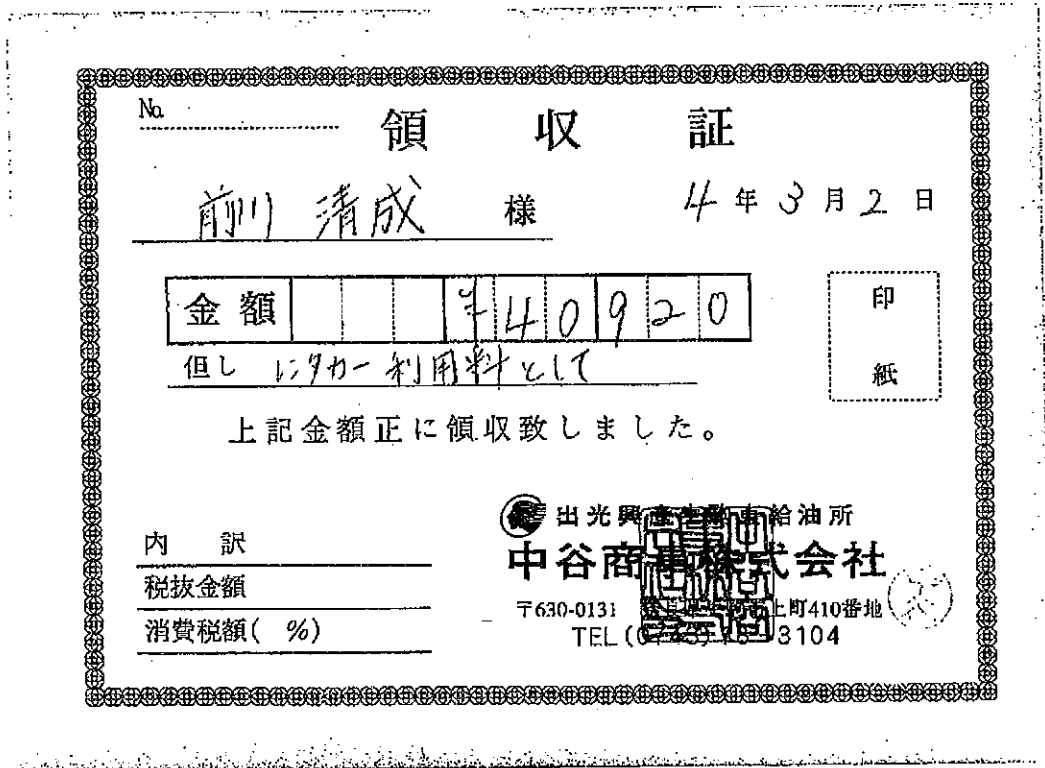 No.
領収証
前川 清成 様
4年3月2日
金額 ¥40920
但し レンタカー利用料として
印紙
上記金額正に領収致しました。
内訳
税抜金額
消費税額( %)
出光興産 給油所
中谷商事株式会社
〒630-0131 上町410番地
TEL 3104